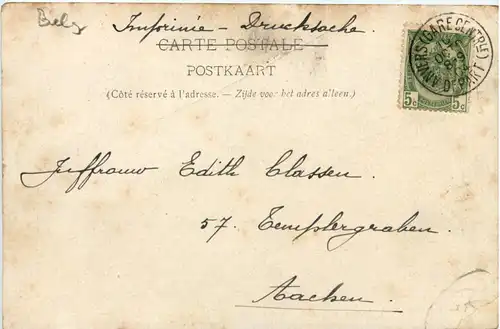 Belg
Imprimée - Drucksache.
CARTE POSTALE
POSTKAART
(Côté réservé à l'adresse. — Zijde voor het adres alleen.)
ANVERS (GARE CENTRLE)
DÉPART
5c 5c
Juffrouw Edith Classen.
57. Templergraben.
Aachen.